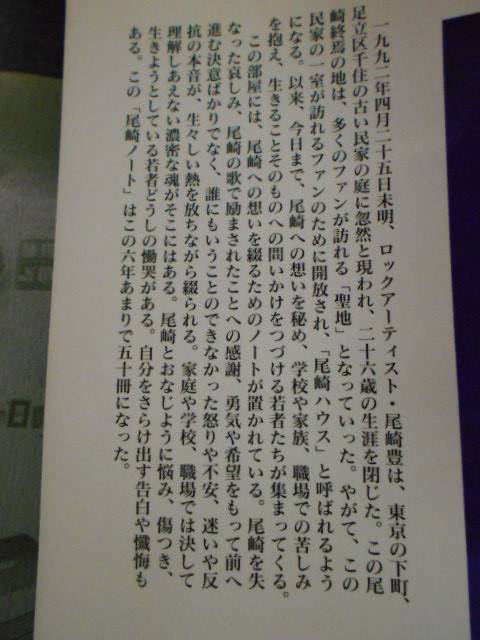 一九九二年四月二十五日未明、ロックアーティスト・尾崎豊は、東京の下町、
足立区千住の古い民家の庭に忽然と現われ、二十六歳の生涯を閉じた。この尾
崎終焉の地は、多くのファンが訪れる「聖地」となっていった。やがて、この
民家の一室が訪れるファンのために開放され、「尾崎ハウス」と呼ばれるよう
になる。以来、今日まで、尾崎への想いを秘め、学校や家族、職場での苦しみ
を抱え、生きることそのものへの問いかけをつづける若者たちが集まってくる。
この部屋には、尾崎への想いを綴るためのノートが置かれている。尾崎を失
なった哀しみ、尾崎の歌で励まされたことへの感謝、勇気や希望をもって前へ
進む決意ばかりでなく、誰にもいうことのできなかった怒りや不安、迷いや反
抗の本音が、生々しい熱を放ちながら綴られる。家庭や学校、職場では決して
理解しあえない濃密な魂がそこにはある。尾崎とおなじように悩み、傷つき、
生きようとしている若者どうしの慟哭がある。自分をさらけ出す告白や懺悔も
ある。この「尾崎ノート」はこの六年あまりで五十冊になった。